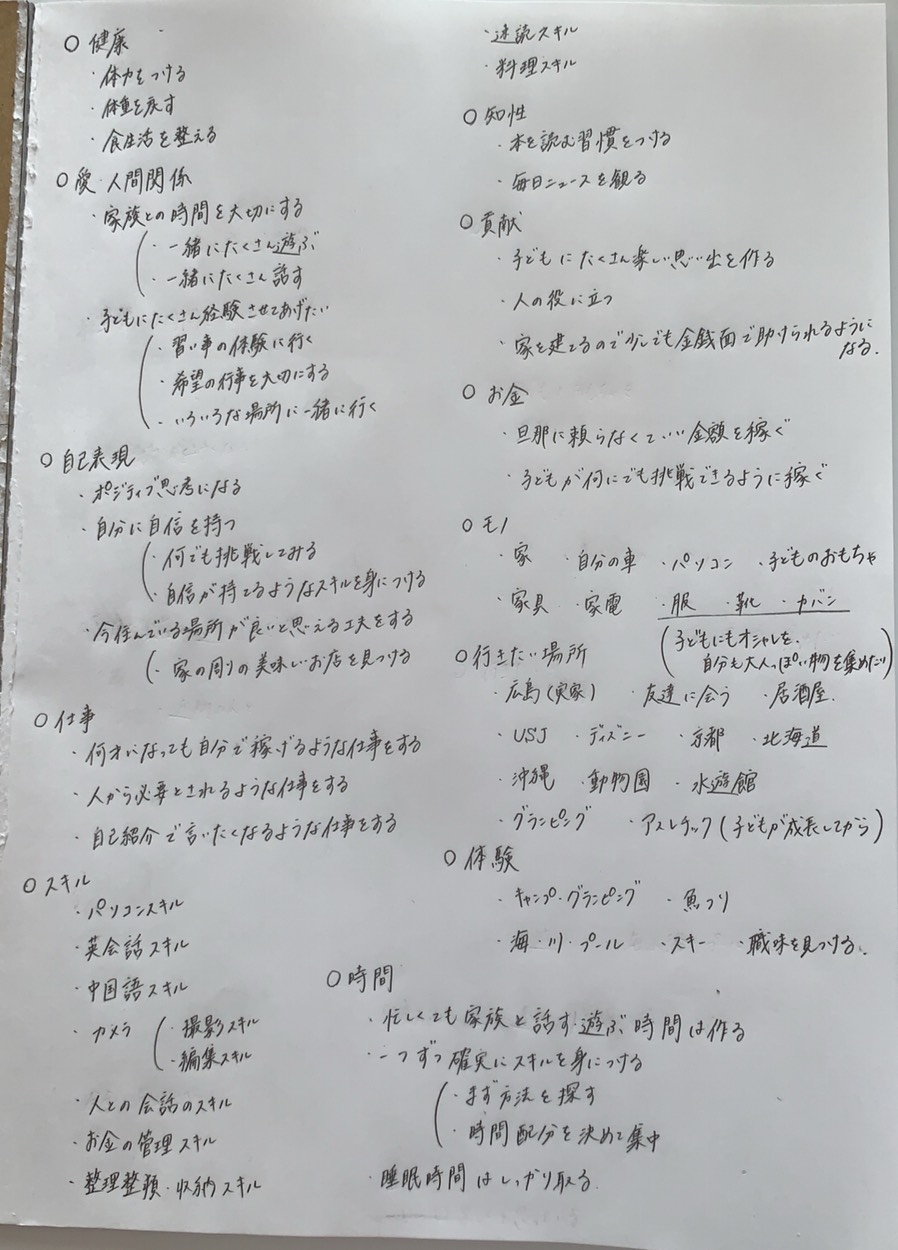 ○ 健康
・体力をつける
・体重を戻す
・食生活を整える
○ 愛・人間関係
・家族との時間を大切にする
・一緒にたくさん遊ぶ
・一緒にたくさん話す
・子どもにたくさん経験させてあげたい
・習い事の体験に行く
・希望の行事を大切にする
・いろいろな場所に一緒に行く
○ 自己表現
・ポジティブ思考になる
・自分に自信を持つ
・何でも挑戦してみる
・自信が持てるようなスキルを身につける
・今住んでいる場所が良いと思える工夫をする
・家の周りの美味しいお店を見つける
○ 仕事
・何才になっても自分で稼げるような仕事をする
・人から必要とされるような仕事をする
・自己紹介で言いたくなるような仕事をする
○ スキル
・パソコンスキル
・英会話スキル
・中国語スキル
・カメラ
・撮影スキル
・編集スキル
・人との会話のスキル
・お金の管理スキル
・整理整頓・収納スキル
・速読スキル
・料理スキル
○ 知性
・本を読む習慣をつける
・毎日ニュースを観る
○ 貢献
・子どもにたくさん楽しい思い出を作る
・人の役に立つ
・家を建てるので少しでも金銭面で助けられるように
なる.
○ お金
・旦那に頼らなくていい金額を稼ぐ
・子どもが何にでも挑戦できるように稼ぐ
○ モノ
・家 ・自分の車 ・パソコン ・子どものおもちゃ
・家具 ・家電 ・服 ・靴 ・カバン
(子どもにもオシャレを、
自分も大人っぽい物を集めたい)
○ 行きたい場所
・広島(実家) ・友達に会う ・居酒屋.
・USJ ・ディズニー ・京都 ・北海道
・沖縄 ・動物園 ・水遊館
・グランピング ・アスレチック(子どもが成長してから)
○ 体験
・キャンプ・グランピング ・魚つり
・海・川・プール ・スキー ・職味を見つける.
○ 時間
・忙しくても家族と話す・遊ぶ時間は作る
・一つずつ確実にスキルを身につける
・まず方法を探す
・時間配分を決めて集中
・睡眠時間はしっかり取る.